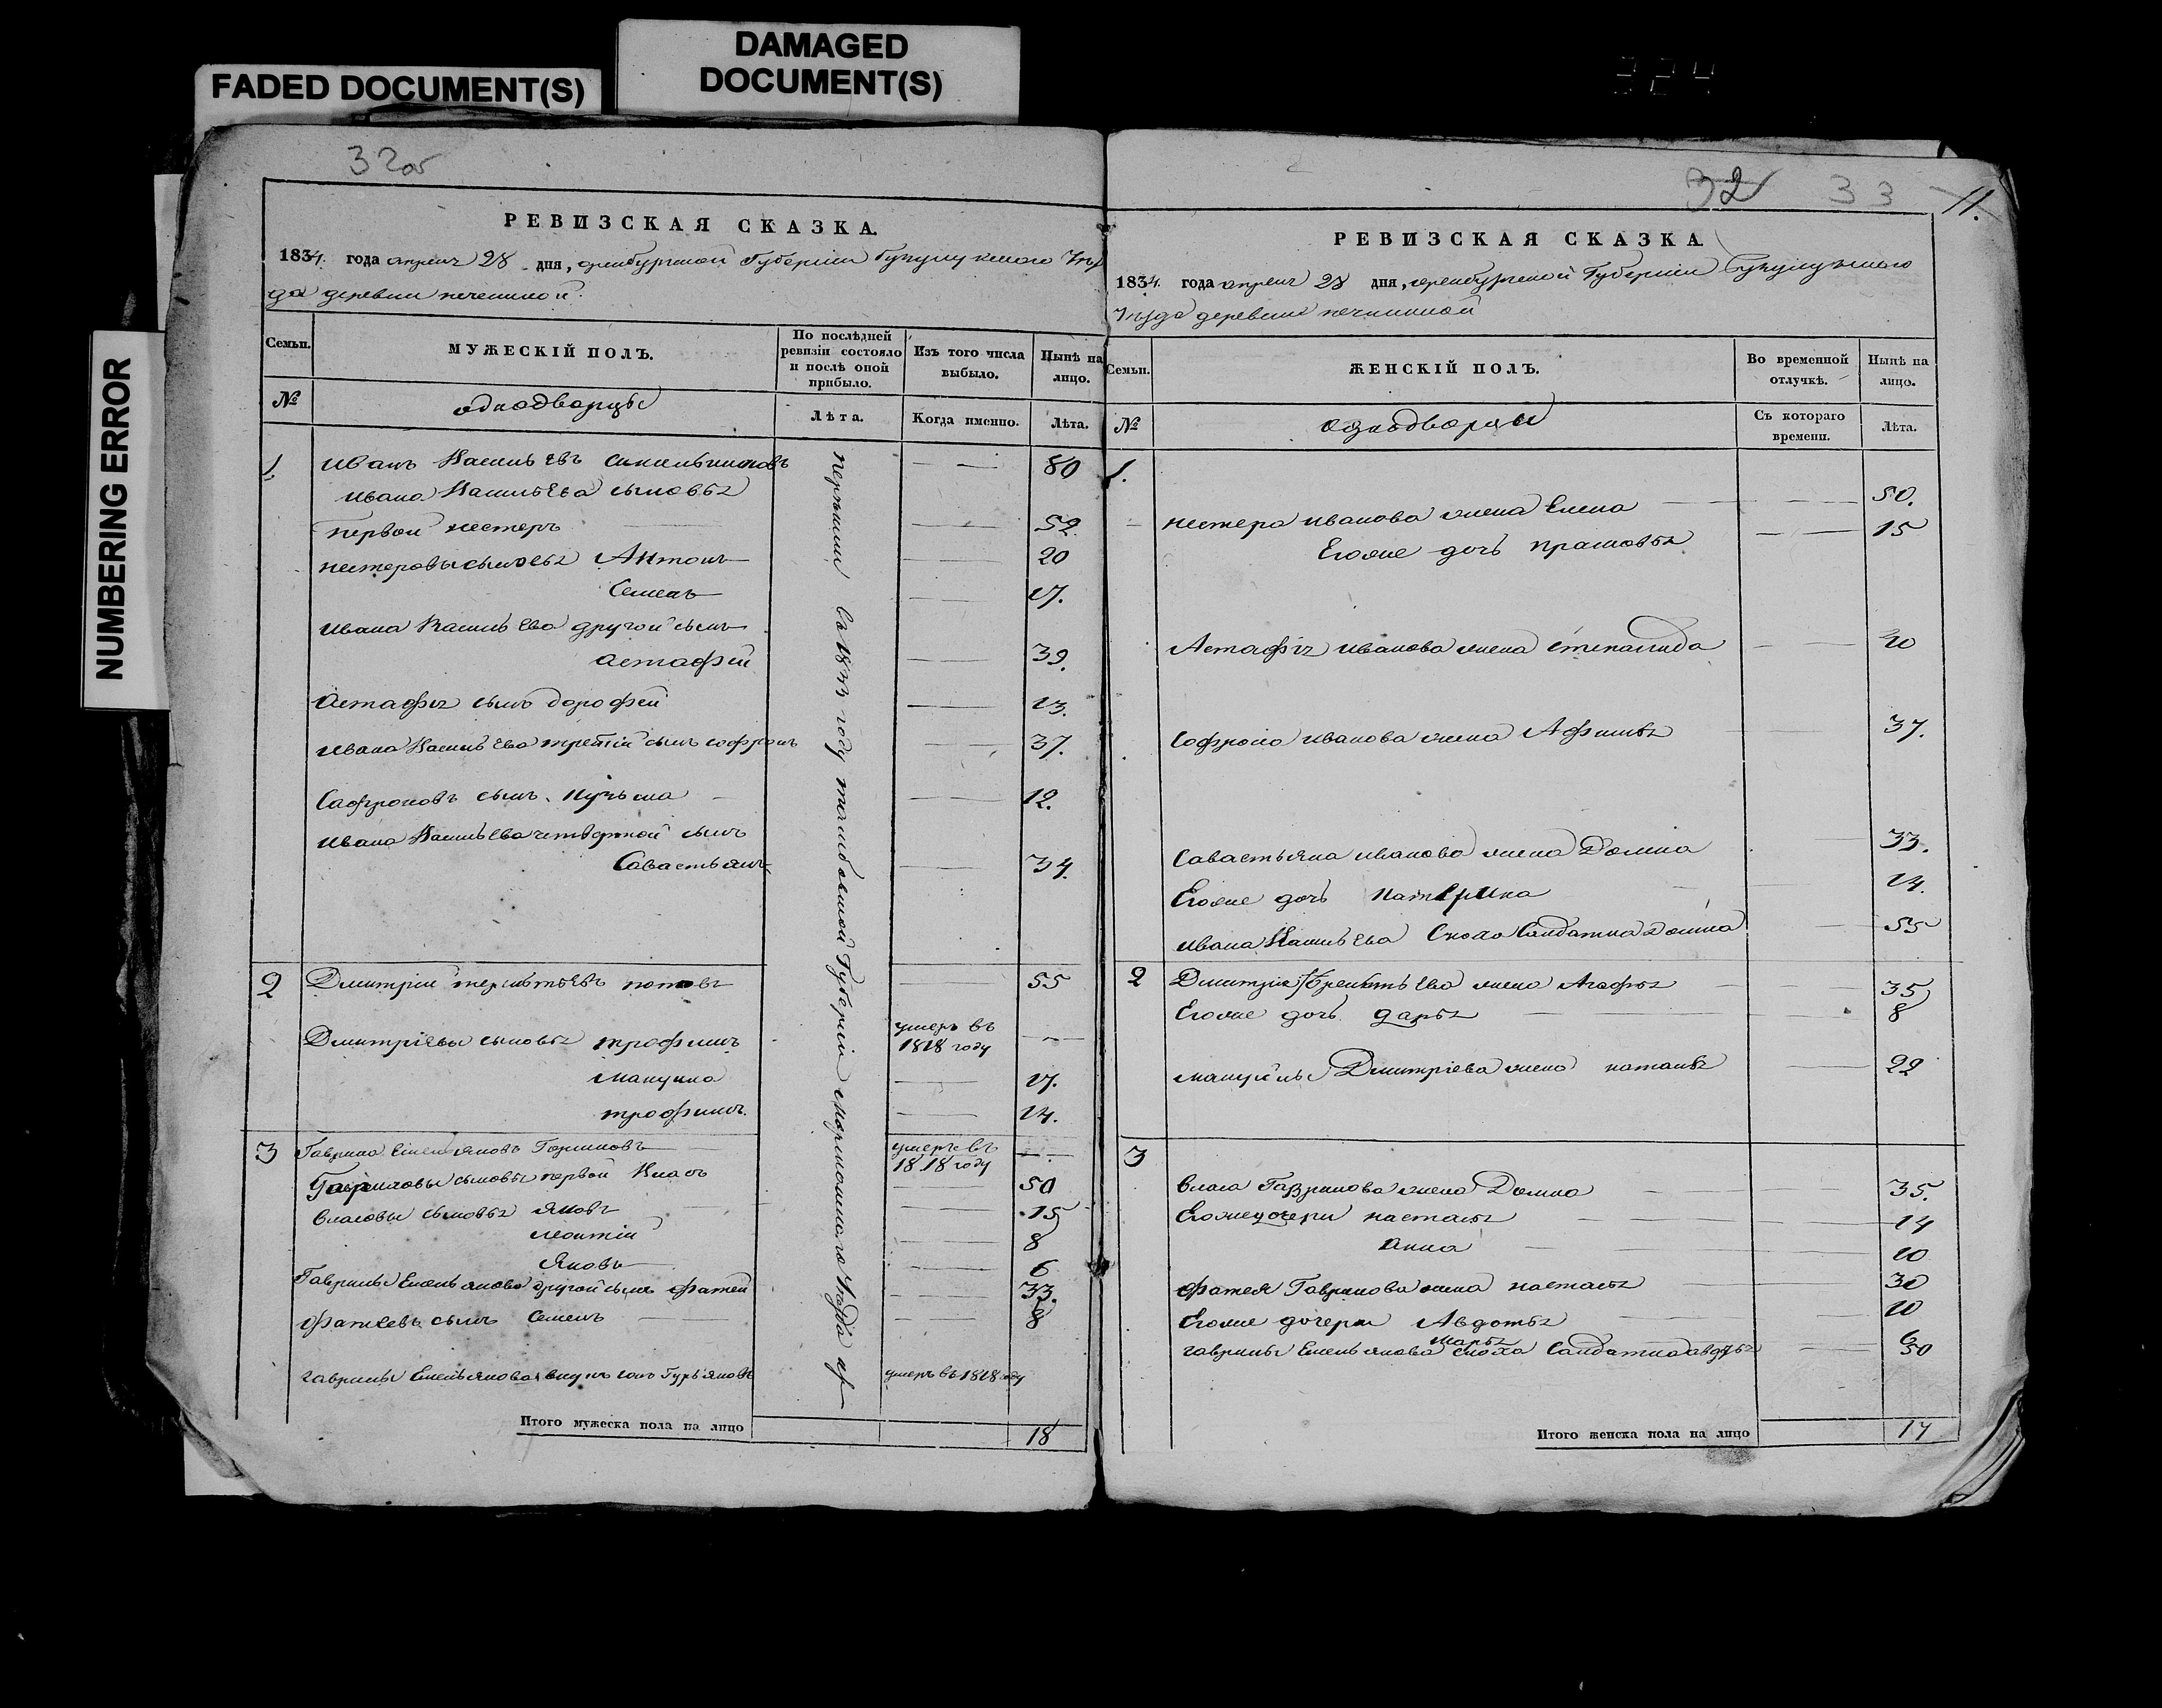 DAMAGED
DOCUMENT(S)
FADED DOCUMENT(S)
NUMBERING ERROR
324
32об
РЕВИЗСКАЯ СКАЗКА.
1834. года апреля 28 дня, оренбургской Губернии бугулу
да деревни печениной
Семьи.
МУЖЕСКІЙ ПОЛЪ.
По послѣдней
ревизіи состояло
и послѣ оной
прибыло.
Изъ того числа
выбыло.
Нынѣ на
лицо.
№
однодворцы
Лѣта.
Когда именно.
Лѣта.
1
Иванъ Васильевъ 80
Ивана Васильева сыновья
первой нестеръ 52.
нестеровы сыновья Антонъ 20
Семенъ 17.
Ивана Васильева другой сынъ
астафей 39.
Астафья сынъ дорофей 13.
Ивана Васильева третій сынъ софронъ 37.
Сафроновъ сынъ кузьма 12.
Ивана Васильева четвертой сынъ
Савастьянъ 34.
2 Дмитрій терентьевъ поповъ 55
Дмитріевы сыновья трофимъ умеръ въ
1818 году
макуила 17.
трофимъ. 14.
3 Гаврила Емельяновъ умеръ въ
1818 году
Гавриловы сыновья первой Власъ 50
Власовы сыновья Яковъ 15
леонтій 8
Яковъ 6
Гаврилы Емельянова другой сынъ фатей 33.
Фатеевъ сынъ Семенъ 8
гаврилы Емельянова внукъ Гурьяновъ умеръ въ 1818 году
въ году тамбовской Губерніи моршанскаго уезда
Итого мужеска пола на лицо
18
32 33 11.
РЕВИЗСКАЯ СКАЗКА.
1834. года апреля 28 дня, оренбургской Губерніи
уезда деревни печининой
Семьи.
ЖЕНСКІЙ ПОЛЪ.
Во временной
отлучкѣ.
Нынѣ на
лицо.
№
однодворцы
Съ котораго
времени.
Лѣта.
1.
нестера иванова жена Елена 50.
Егоже дочь прасковья 15
Астафья иванова жена степанида 40
Софрона иванова жена Афимья 37.
Савастьяна иванова жена Домна 33.
Егоже дочь катерина 14.
ивана Васильева сноха Салдатка домна 55
2 Дмитрія терентьева жена Агафья 35
Егоже дочь дарья 8
макуилы Дмитріева жена наталья 22
3
Власа Гаврилова жена Домна 35.
Егоже дочери настасья 14
анна 10
фатея Гаврилова жена настасья 30
Егоже дочери Авдотья 10
марья 6
гаврилы Емельянова сноха Салдатка авдотья 50
Итого женска пола на лицо
17